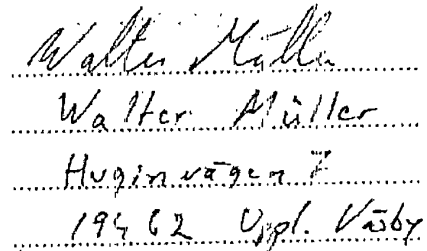 Walter Müller
Walter Müller
Huginvägen 7
194 62 Uppl. Väsby